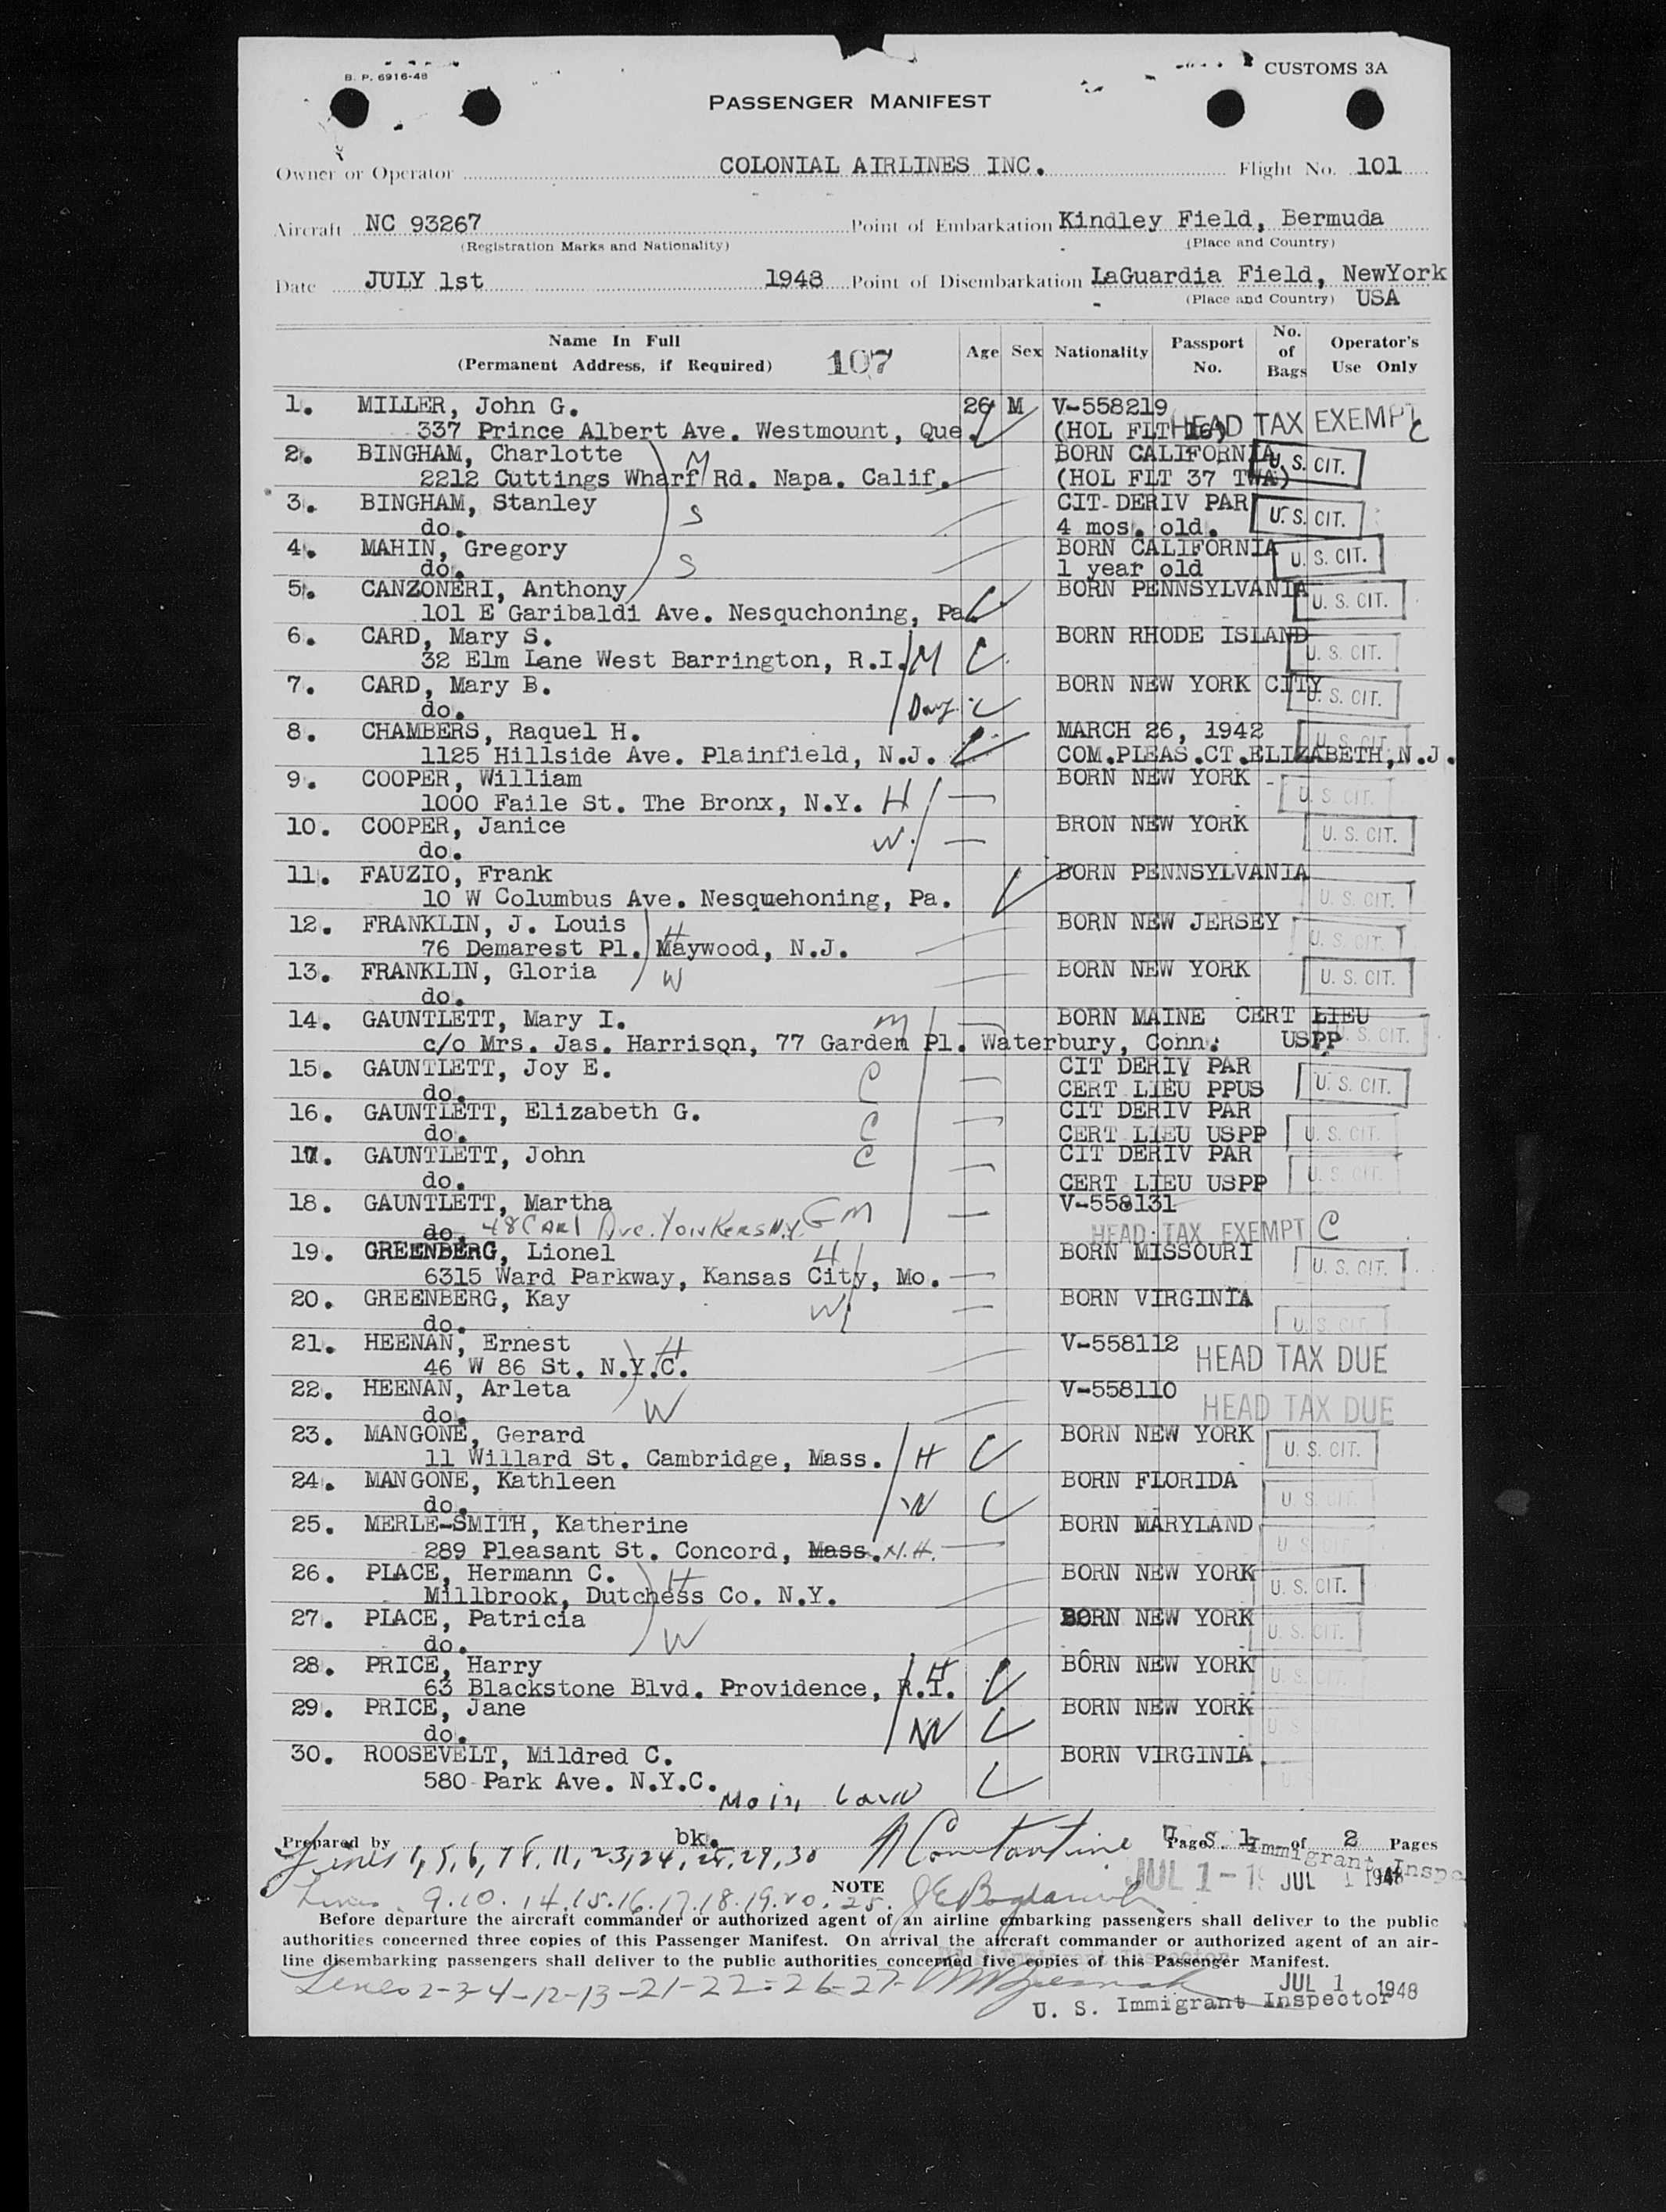 B. P. 6916-48
CUSTOMS 3A
PASSENGER MANIFEST
Owner or Operator COLONIAL AIRLINES INC. Flight No. 101
Aircraft NC 93267 Point of Embarkation Kindley Field, Bermuda
(Registration Marks and Nationality) (Place and Country)
Date JULY 1st 1948 Point of Disembarkation LaGuardia Field, NewYork
(Place and Country) USA
Name In Full (Permanent Address, if Required) 107 Age Sex Nationality Passport No. No. of Bags Operator's Use Only
1. MILLER, John G. 26 M V-558219
337 Prince Albert Ave. Westmount, Que. (HOL FLT 16) HEAD TAX EXEMPT C
2. BINGHAM, Charlotte M BORN CALIFORNIA U. S. CIT.
2212 Cuttings Wharf Rd. Napa. Calif. (HOL FLT 37 TWA)
3. BINGHAM, Stanley S CIT-DERIV PAR U. S. CIT.
do. 4 mos. old.
4. MAHIN, Gregory BORN CALIFORNIA U. S. CIT.
do. S 1 year old
5. CANZONERI, Anthony BORN PENNSYLVANIA U. S. CIT.
101 E Garibaldi Ave. Nesquchoning, Pa.
6. CARD, Mary S. BORN RHODE ISLAND
32 Elm Lane West Barrington, R.I. M U. S. CIT.
7. CARD, Mary B. BORN NEW YORK CITY U. S. CIT.
do. Dau.
8. CHAMBERS, Raquel H. MARCH 26, 1942 U. S. CIT.
1125 Hillside Ave. Plainfield, N.J. COM.PLEAS.CT.ELIZABETH,N.J.
9. COOPER, William BORN NEW YORK
1000 Faile St. The Bronx, N.Y. H U. S. CIT.
10. COOPER, Janice BRON NEW YORK U. S. CIT.
do. W.
11. FAUZIO, Frank BORN PENNSYLVANIA
10 W Columbus Ave. Nesquehoning, Pa. U. S. CIT.
12. FRANKLIN, J. Louis H BORN NEW JERSEY
76 Demarest Pl. Maywood, N.J. U. S. CIT.
13. FRANKLIN, Gloria W BORN NEW YORK U. S. CIT.
do.
14. GAUNTLETT, Mary I. M BORN MAINE CERT LIEU
c/o Mrs. Jas. Harrison, 77 Garden Pl. Waterbury, Conn. USPP U. S. CIT.
15. GAUNTLETT, Joy E. C CIT DERIV PAR
do. CERT LIEU PPUS U. S. CIT.
16. GAUNTLETT, Elizabeth G. C CIT DERIV PAR
do. CERT LIEU USPP U. S. CIT.
17. GAUNTLETT, John C CIT DERIV PAR
do. CERT LIEU USPP U. S. CIT.
18. GAUNTLETT, Martha V-558131
do. 48 CARL Ave. YONKERS N.Y. GM HEAD TAX EXEMPT C
19. GREENBERG, Lionel H BORN MISSOURI
6315 Ward Parkway, Kansas City, Mo. U. S. CIT.
20. GREENBERG, Kay W BORN VIRGINIA
do. U. S. CIT.
21. HEENAN, Ernest H V-558112
46 W 86 St. N.Y.C. HEAD TAX DUE
22. HEENAN, Arleta W V-558110
do. HEAD TAX DUE
23. MANGONE, Gerard BORN NEW YORK
11 Willard St. Cambridge, Mass. H U. S. CIT.
24. MANGONE, Kathleen BORN FLORIDA
do. W U. S. CIT.
25. MERLE-SMITH, Katherine BORN MARYLAND
289 Pleasant St. Concord, Mass. N.H. U. S. CIT.
26. PLACE, Hermann C. H BORN NEW YORK
Millbrook, Dutchess Co. N.Y. U. S. CIT.
27. PLACE, Patricia BORN NEW YORK
do. W U. S. CIT.
28. PRICE, Harry H BORN NEW YORK
63 Blackstone Blvd. Providence, R.I. U. S. CIT.
29. PRICE, Jane BORN NEW YORK
do. W U. S.
30. ROOSEVELT, Mildred C. BORN VIRGINIA
580 Park Ave. N.Y.C. U. S.
Prepared by bk. N Constantine Page 1 of 2 Pages
U. S. Immigrant Inspector
Lines 1, 5, 6, 7 8, 11, 23, 24, 28, 29, 30 JUL 1 - 19 JUL 1 1948
Lines 9.10.14.15.16.17.18.19.20.25.
NOTE
Before departure the aircraft commander or authorized agent of an airline embarking passengers shall deliver to the public
authorities concerned three copies of this Passenger Manifest. On arrival the aircraft commander or authorized agent of an air-
line disembarking passengers shall deliver to the public authorities concerned five copies of this Passenger Manifest.
U S Immigrant Inspector
Lines 2-3-4-12-13-21-22-26-27- JUL 1 1948
U. S. Immigrant Inspector